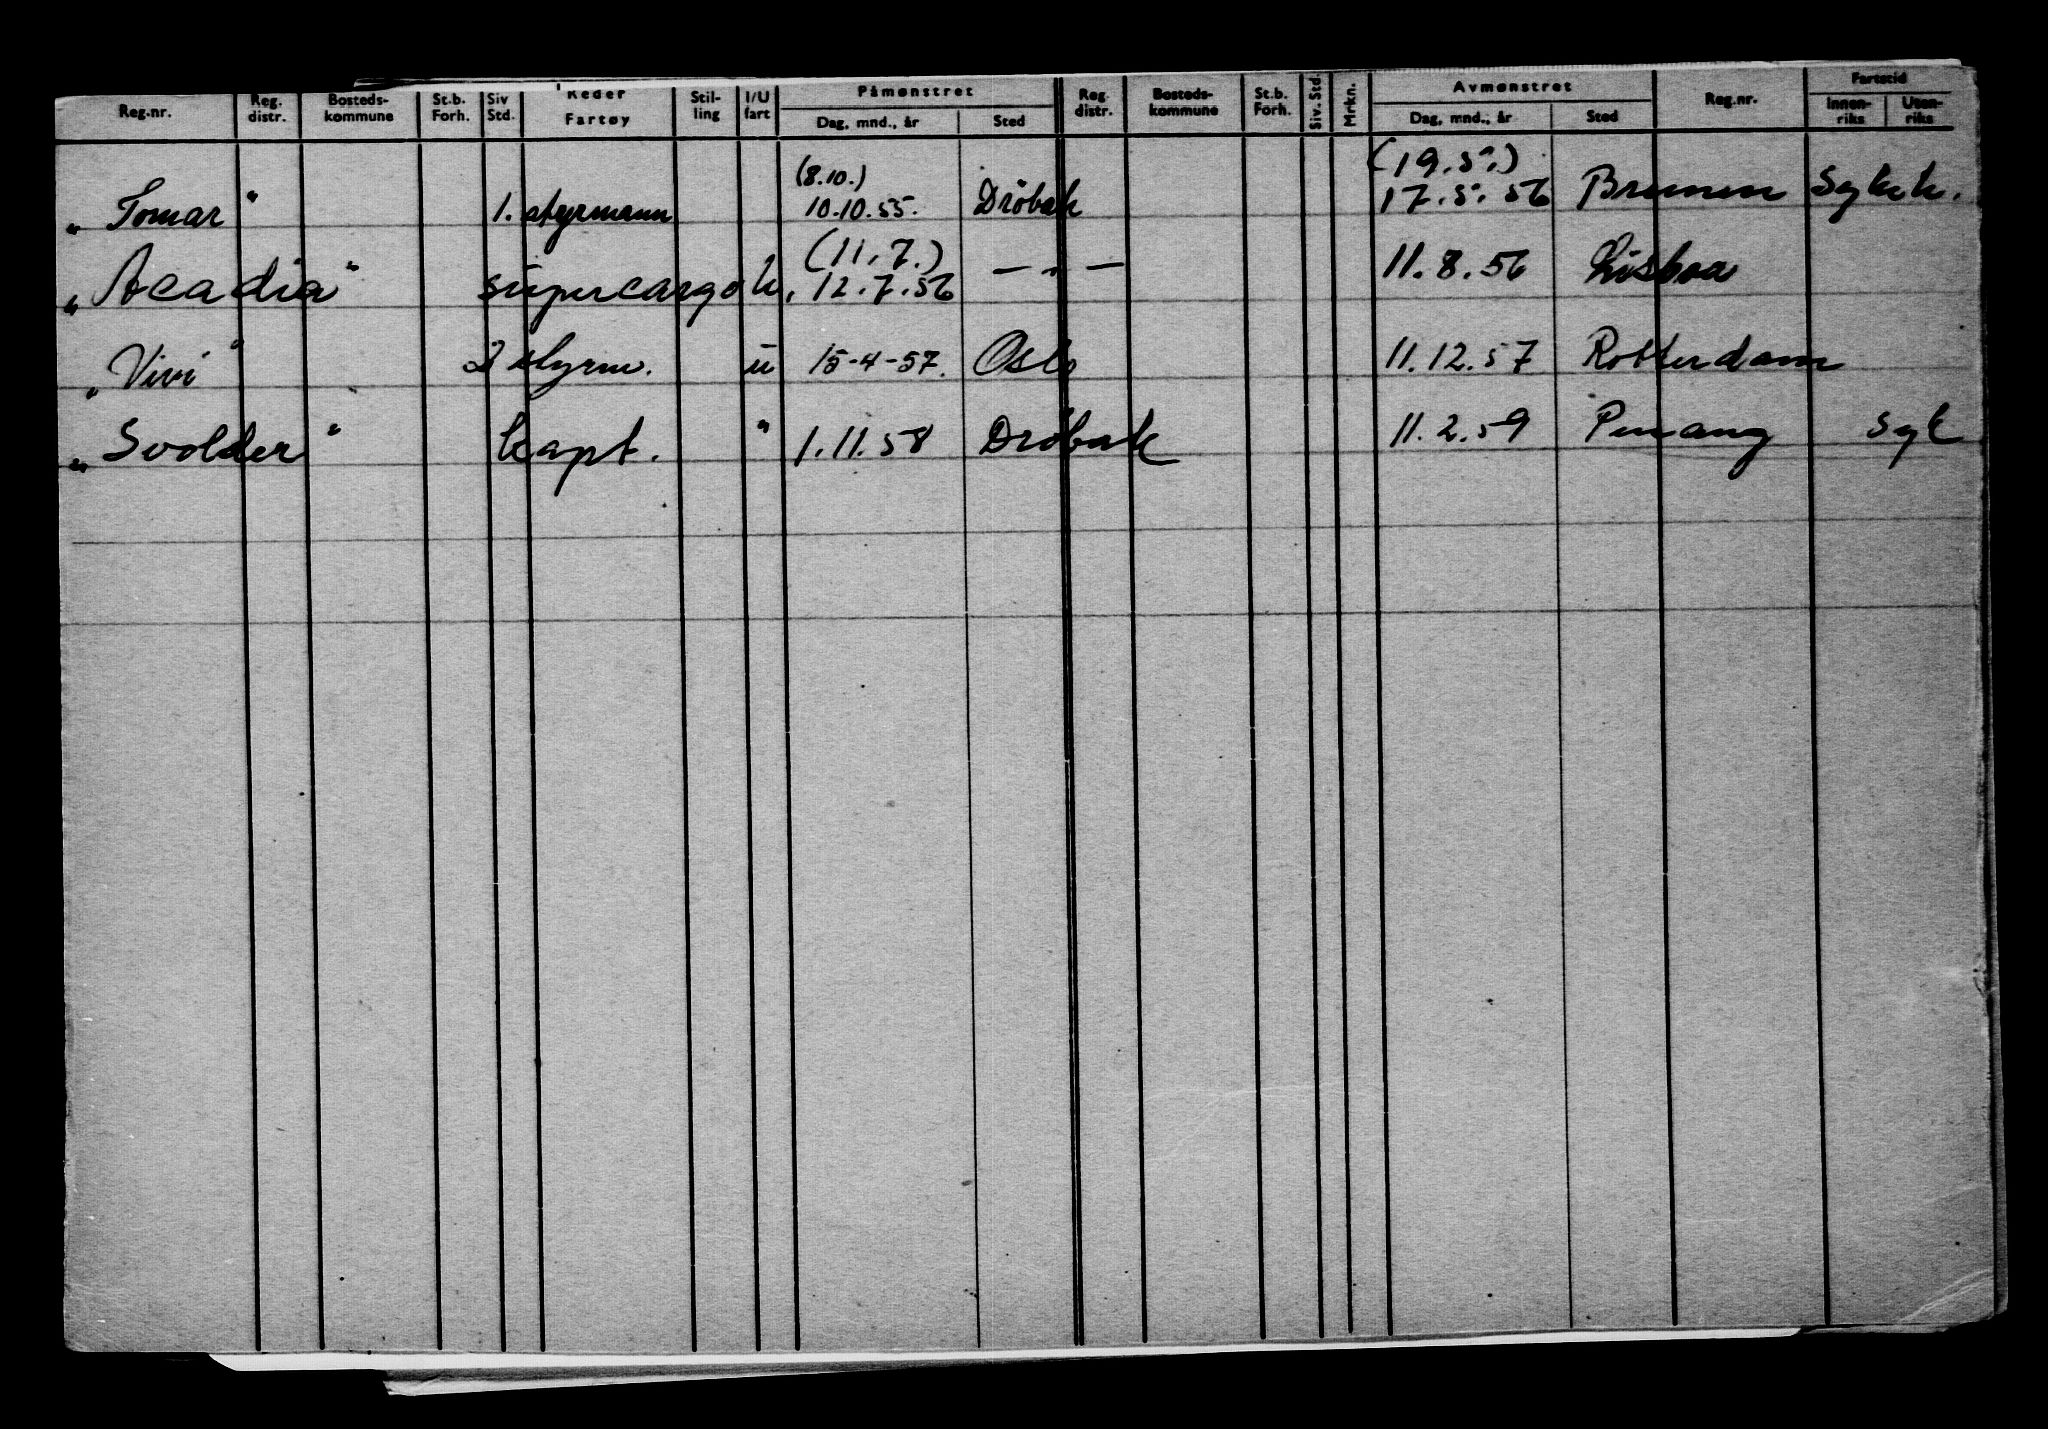 Reg.nr. Reg. distr. Bosteds-kommune St.b. Forh. Siv Std. Reder Fartøy Stil-ling I/U fart Påmønstret Dag, mnd., år Sted Reg. distr. Bosteds-kommune St.b. Forh. Siv. Std Mrkn. Avmønstret Dag, mnd., år Sted Reg.nr. Fartstid Innen-riks Uten-riks
(8.10.) (19.5.)
„Tomar" 1. styrmann 10.10.55. Dröbak 17.5.56 Bremen
(11.7.)
„Acadia" supercargo u. 12.7.56 — „ — 11.8.56 Lisboa
„Vivi" 2 styrm. u 15-4-57. Oslo 11.12.57 Rotterdam
„Svolder" kapt. " 1.11.58 Dröbak 11.2.59 Penang syk